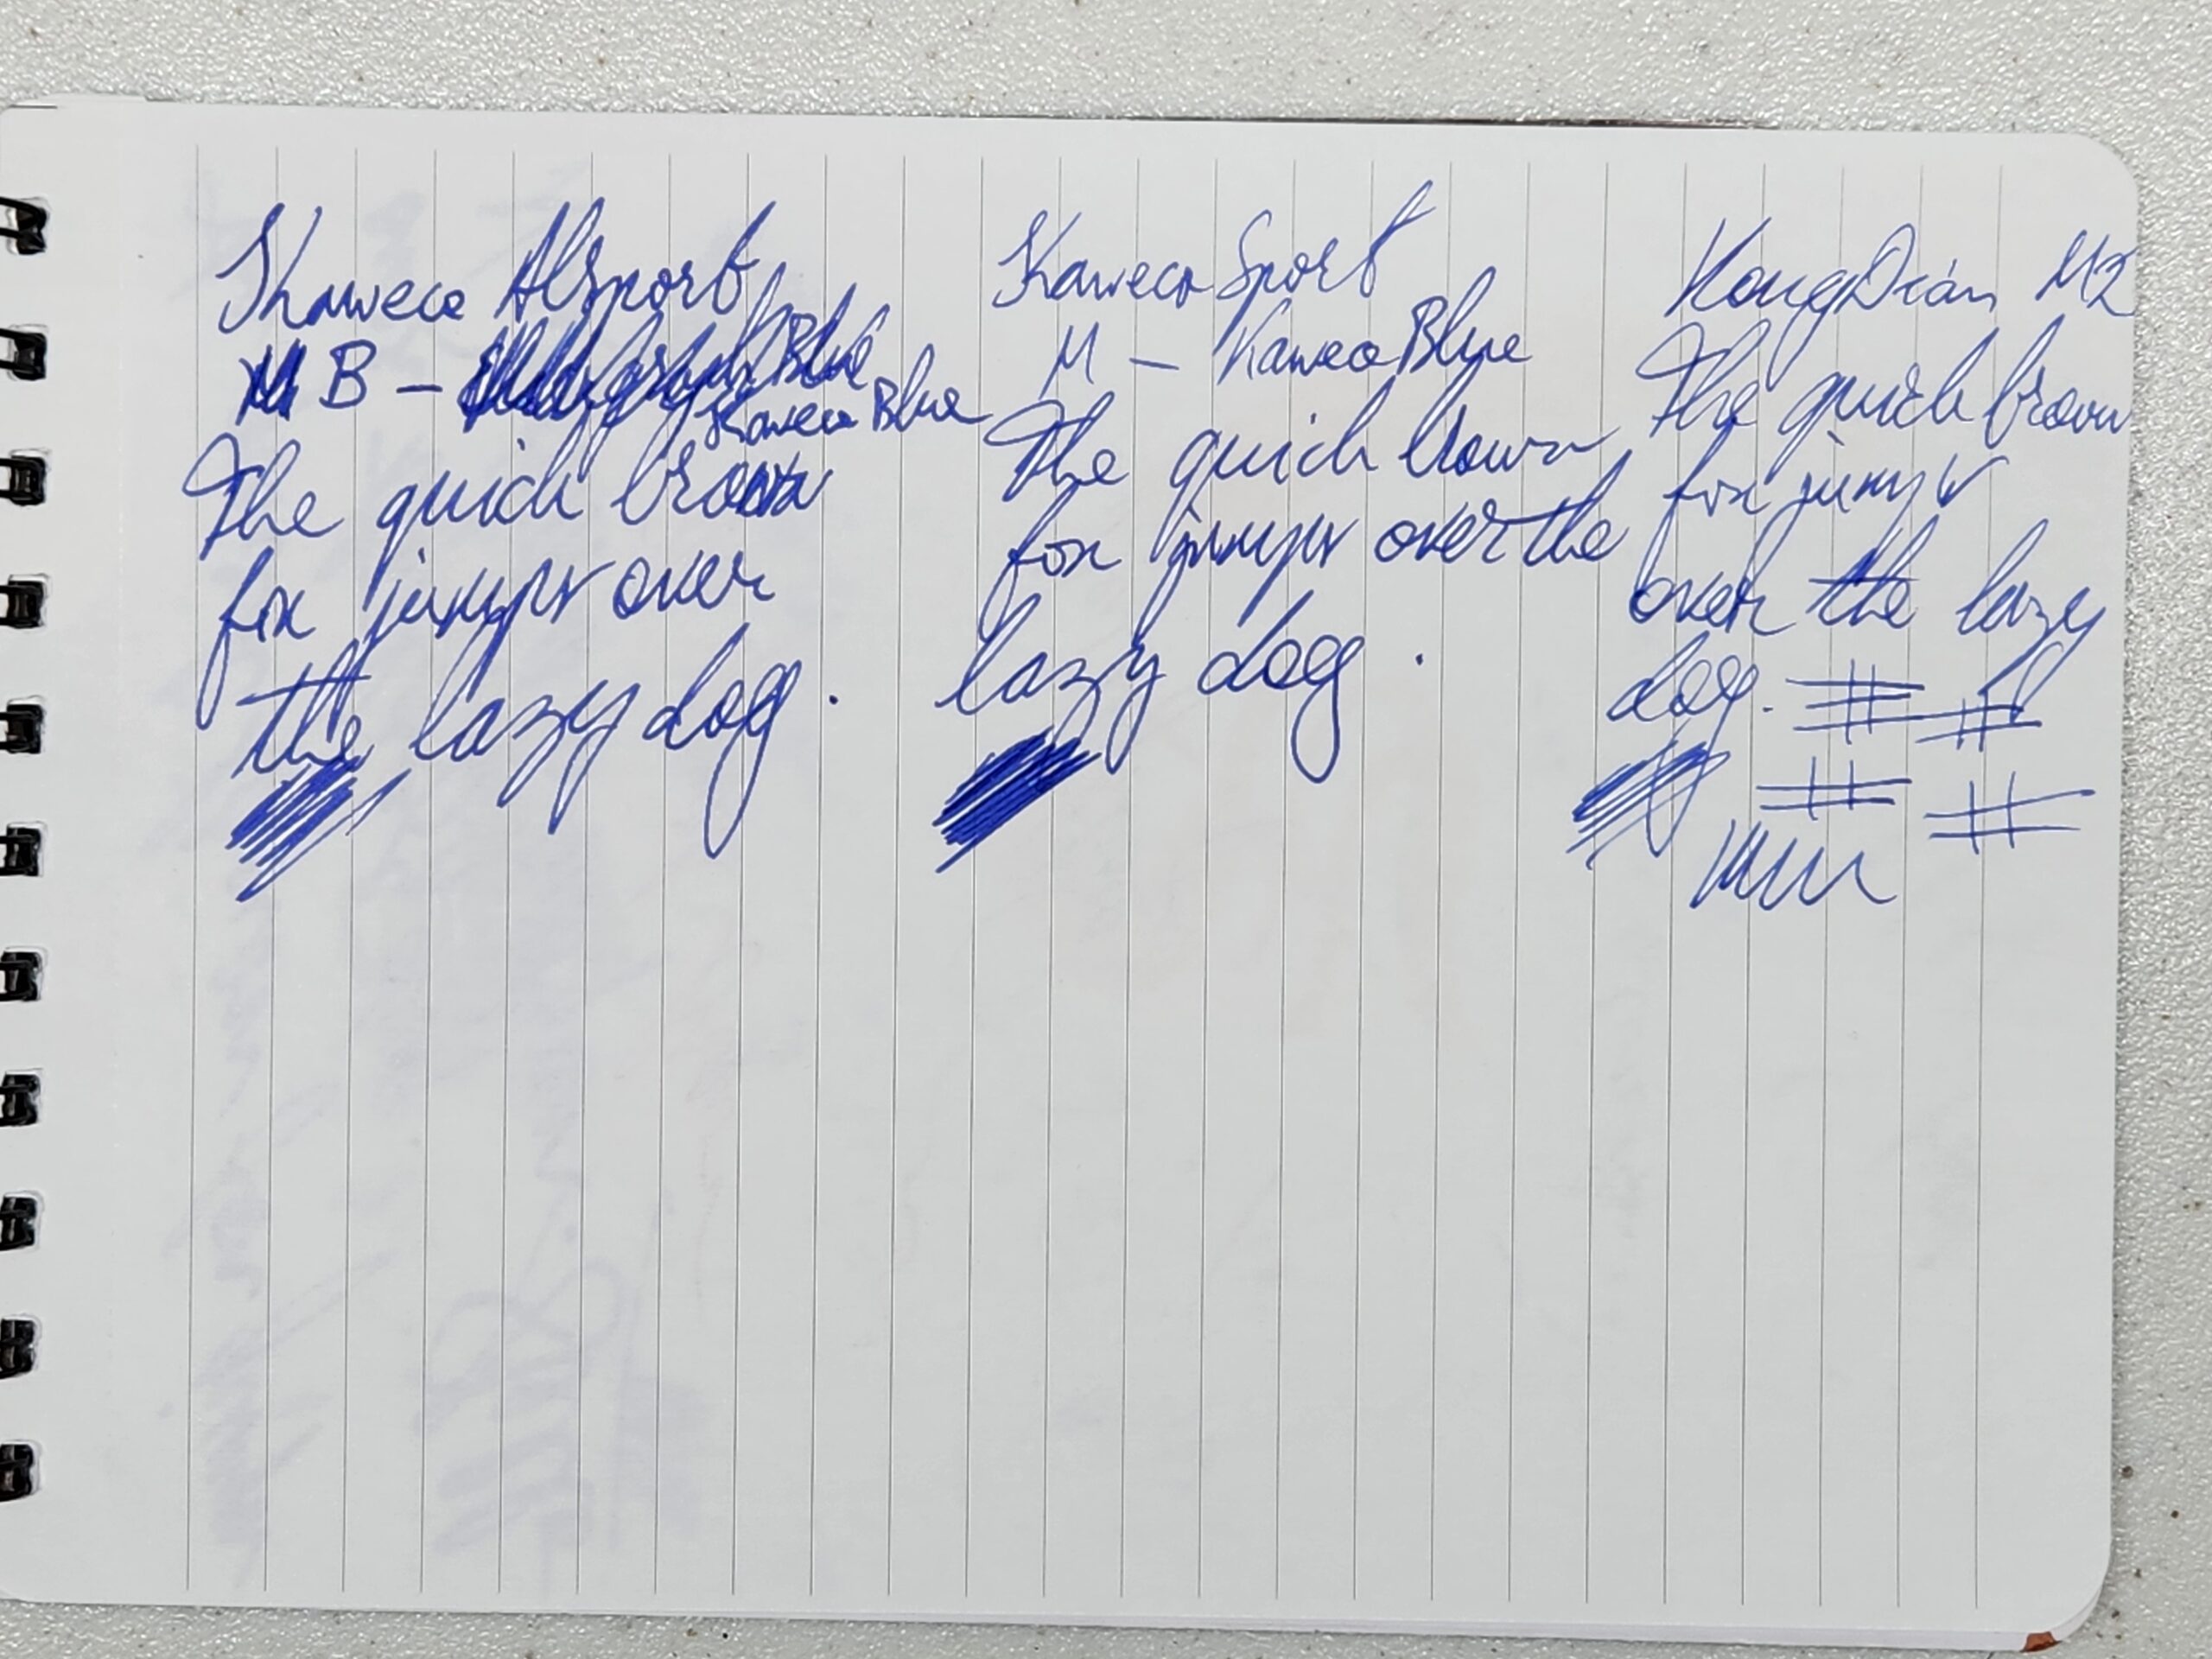 Kaweco AlSport
B - Kaweco Blue
The quick brown
fox jumps over
the lazy dog.
Kaweco Sport
M - Kaweco Blue
The quick brown
fox jumps over the
lazy dog.
KongDian M2
The quick brown
fox jumps
over the lazy
dog. # #
# #